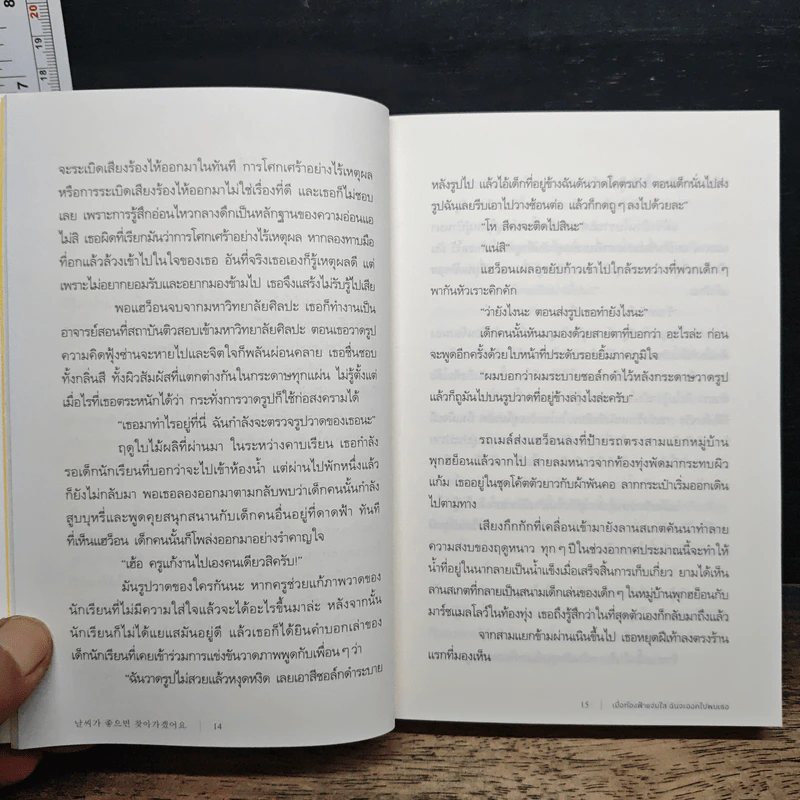 จะระเบิดเสียงร้องไห้ออกมาในทันที การโศกเศร้าอย่างไร้เหตุผล
หรือการระเบิดเสียงร้องไห้ออกมาไม่ใช่เรื่องที่ดี และเธอก็ไม่ชอบ
เลย เพราะการรู้สึกอ่อนไหวกลางดึกเป็นหลักฐานของความอ่อนแอ
ไม่สิ เธอผิดที่เรียกมันว่าการโศกเศร้าอย่างไร้เหตุผล หากลองทาบมือ
ที่อกแล้วล้วงเข้าไปในใจของเธอ อันที่จริงเธอเองก็รู้เหตุผลดี แต่
เพราะไม่อยากยอมรับและอยากมองข้ามไป เธอจึงแสร้งไม่รับรู้ไปเสีย
พอแฮว็อนจบจากมหาวิทยาลัยศิลปะ เธอก็ทำงานเป็น
อาจารย์สอนที่สถาบันติวสอบเข้ามหาวิทยาลัยศิลปะ ตอนเธอวาดรูป
ความคิดฟุ้งซ่านจะหายไปและจิตใจก็พลันผ่อนคลาย เธอชื่นชอบ
ทั้งกลิ่นสี ทั้งผิวสัมผัสที่แตกต่างกันในกระดาษทุกแผ่น ไม่รู้ตั้งแต่
เมื่อไรที่เธอตระหนักได้ว่า กระทั่งการวาดรูปก็ใช้ก่อสงครามได้
“เธอมาทำไรอยู่ที่นี่ ฉันกำลังจะตรวจรูปวาดของเธอนะ”
ฤดูใบไม้ผลิที่ผ่านมา ในระหว่างคาบเรียน เธอกำลัง
รอเด็กนักเรียนที่บอกว่าจะไปเข้าห้องน้ำ แต่ผ่านไปพักหนึ่งแล้ว
ก็ยังไม่กลับมา พอเธอลองออกมาตามกลับพบว่าเด็กคนนั้นกำลัง
สูบบุหรี่และพูดคุยสนุกสนานกับเด็กคนอื่นอยู่ที่ดาดฟ้า ทันที
ที่เห็นแฮว็อน เด็กคนนั้นก็โพล่งออกมาอย่างรำคาญใจ
“เฮ้อ ครูแก้งานไปเองคนเดียวสิครับ!”
มันรูปวาดของใครกันนะ หากครูช่วยแก้ภาพวาดของ
นักเรียนที่ไม่มีความใส่ใจแล้วจะได้อะไรขึ้นมาล่ะ หลังจากนั้น
นักเรียนก็ไม่ได้แยแสมันอยู่ดี แล้วเธอก็ได้ยินคำบอกเล่าของ
เด็กนักเรียนที่เคยเข้าร่วมการแข่งขันวาดภาพพูดกับเพื่อนๆ ว่า
“ฉันวาดรูปไม่สวยแล้วหงุดหงิด เลยเอาสีชอล์กดำระบาย
날씨가 좋으면 찾아가겠어요 | 14
หลังรูปไป แล้วไอ้เด็กที่อยู่ข้างฉันดันวาดโคตรเก่ง ตอนเด็กนั่นไปส่ง
รูปฉันเลยรีบเอาไปวางซ้อนต่อ แล้วก็กดถูๆ ลงไปด้วยละ”
“โห สีคงจะติดไปสินะ”
“แน่สิ”
แฮว็อนเผลอขยับก้าวเข้าไปใกล้ระหว่างที่พวกเด็กๆ
พากันหัวเราะคิกคัก
“ว่ายังไงนะ ตอนส่งรูปเธอทำยังไงนะ”
เด็กคนนั้นหันมามองด้วยสายตาที่บอกว่า อะไรล่ะ ก่อน
จะพูดอีกครั้งด้วยใบหน้าที่ประดับรอยยิ้มภาคภูมิใจ
“ผมบอกว่าผมระบายชอล์กดำไว้หลังกระดาษวาดรูป
แล้วก็ถูมันไปบนรูปวาดที่อยู่ข้างล่างไงล่ะครับ”
รถเมล์ส่งแฮว็อนลงที่ป้ายรถตรงสามแยกหมู่บ้าน
พุกฮย็อนแล้วจากไป สายลมหนาวจากท้องทุ่งพัดมากระทบผิว
แก้ม เธออยู่ในชุดโค้ตตัวยาวกับผ้าพันคอ ลากกระเป๋าเริ่มออกเดิน
ไปตามทาง
เสียงกึกกักที่เคลื่อนเข้ามายังลานสเกตคันนาทำลาย
ความสงบของฤดูหนาว ทุกๆ ปีในช่วงอากาศประมาณนี้จะทำให้
น้ำที่อยู่ในนากลายเป็นน้ำแข็งเมื่อเสร็จสิ้นการเก็บเกี่ยว ยามได้เห็น
ลานสเกตที่กลายเป็นสนามเด็กเล่นของเด็กๆ ในหมู่บ้านพุกฮย็อนกับ
มาร์ชแมลโลว์ในท้องทุ่ง เธอถึงรู้สึกว่าในที่สุดตัวเองก็กลับมาถึงแล้ว
จากสามแยกข้ามผ่านเนินขึ้นไป เธอหยุดฝีเท้าลงตรงร้าน
แรกที่มองเห็น
15 | เมื่อท้องฟ้าแจ่มใส ฉันจะออกไปพบเธอ
8
7
20
19
18